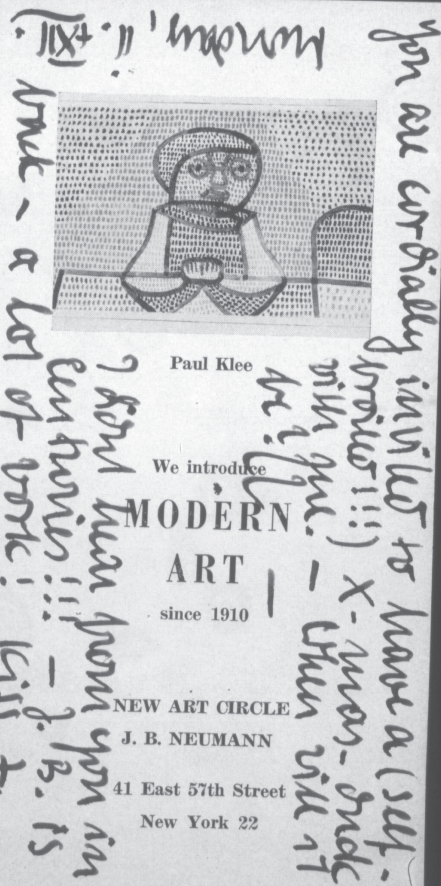 Monday, 11. XII.
Paul Klee
We introduce
MODERN
ART
since 1910
NEW ART CIRCLE
J. B. NEUMANN
41 East 57th Street
New York 22
You are cordially invited to have a (self-
broiled!!!) X-mas-duck
with me. – When will it
be?
I didn't hear from you in
centuries!!! – J. B. is
back – a lot of work! Kiss